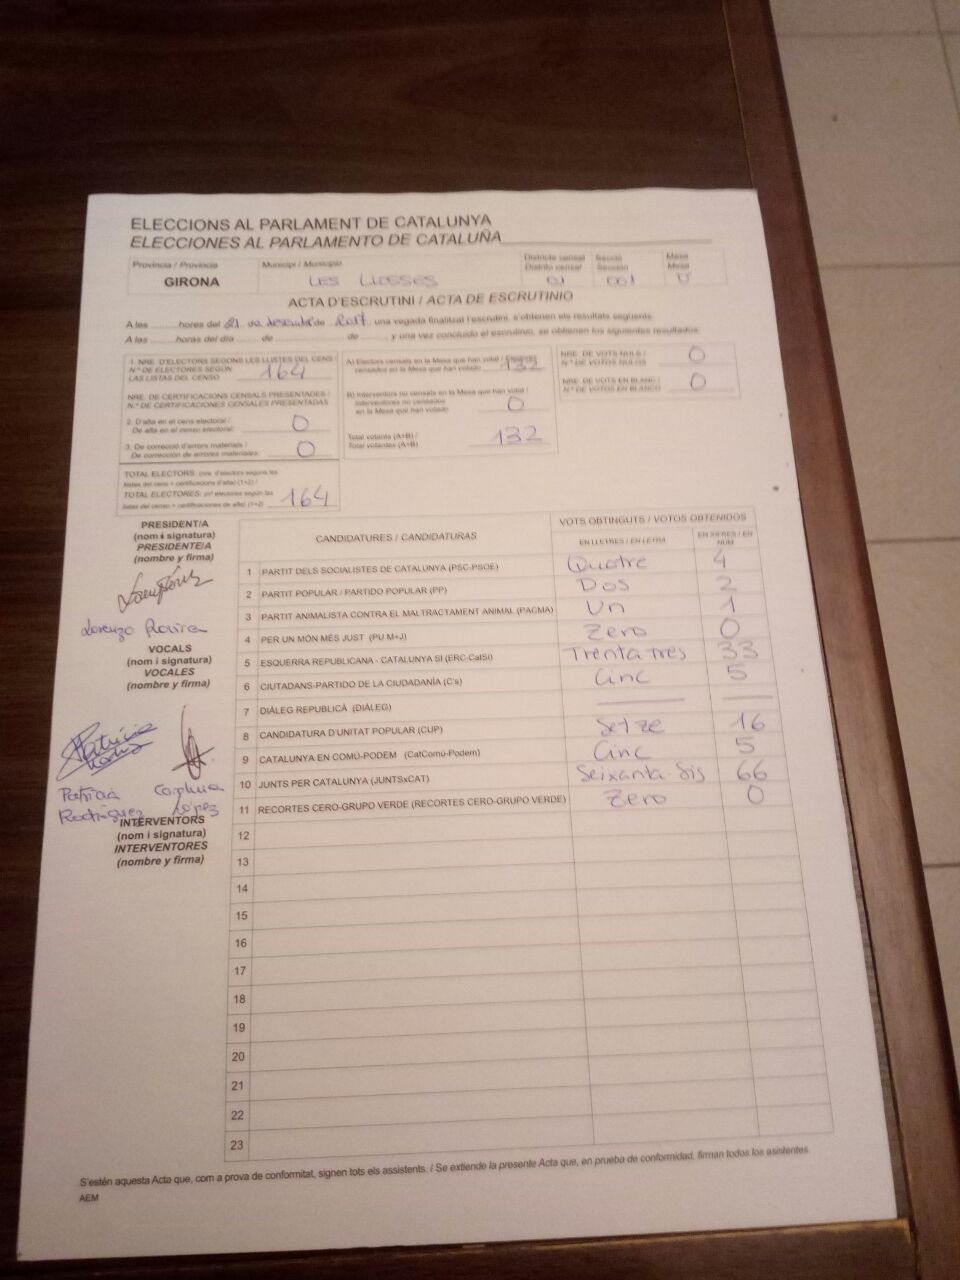 ELECCIONS AL PARLAMENT DE CATALUNYA
ELECCIONES AL PARLAMENTO DE CATALUÑA
Província / Provincia Municipi / Municipio Districte censal Secció Mesa
Distrito censal Sección Mesa
GIRONA LES LLOSSES 01 001 U
ACTA D'ESCRUTINI / ACTA DE ESCRUTINIO
A les ........hores del 21 de desembre de 2017, una vegada finalitzat l'escrutini, s'obtenen els resultats següents:
A las ........horas del día ........ de ........ de ........, y una vez concluido el escrutinio, se obtienen los siguientes resultados:
1. NRE. D'ELECTORS SEGONS LES LLISTES DEL CENS
N.º DE ELECTORES SEGÚN
LAS LISTAS DEL CENSO 164
NRE. DE CERTIFICACIONS CENSALS PRESENTADES /
N.º DE CERTIFICACIONES CENSALES PRESENTADAS
2. D'alta en el cens electoral /
De alta en el censo electoral: 0
3. De correcció d'errors materials /
De corrección de errores materiales: 0
TOTAL ELECTORS: (nre. d'electors segons les
llistes del cens + certificacions d'alta) (1+2) /
TOTAL ELECTORES: (nº electores según las
listas del censo + certificaciones de alta) (1+2) 164
A) Electors censats en la Mesa que han votat / Electores
censados en la Mesa que han votado 132
B) Interventors no censats en la Mesa que han votat /
Interventores no censados
en la Mesa que han votado 0
Total votants (A+B) /
Total votantes (A+B) 132
NRE. DE VOTS NULS /
N.º DE VOTOS NULOS 0
NRE. DE VOTS EN BLANC /
N.º DE VOTOS EN BLANCO 0
PRESIDENT/A
(nom i signatura)
PRESIDENTE/A
(nombre y firma)
Lorenzo Rovira
VOCALS
(nom i signatura)
VOCALES
(nombre y firma)
Patricia
Rodríguez
López
INTERVENTORS
(nom i signatura)
INTERVENTORES
(nombre y firma)
CANDIDATURES / CANDIDATURAS VOTS OBTINGUTS / VOTOS OBTENIDOS
EN LLETRES / EN LETRA EN XIFRES / EN NUM
1 PARTIT DELS SOCIALISTES DE CATALUNYA (PSC-PSOE) Quatre 4
2 PARTIT POPULAR / PARTIDO POPULAR (PP) Dos 2
3 PARTIT ANIMALISTA CONTRA EL MALTRACTAMENT ANIMAL (PACMA) Un 1
4 PER UN MÓN MÉS JUST (PU M+J) Zero 0
5 ESQUERRA REPUBLICANA - CATALUNYA SÍ (ERC-CatSí) Trenta tres 33
6 CIUTADANS-PARTIDO DE LA CIUDADANÍA (C's) Cinc 5
7 DIÀLEG REPUBLICÀ (DIÀLEG)
8 CANDIDATURA D'UNITAT POPULAR (CUP) Setze 16
9 CATALUNYA EN COMÚ-PODEM (CatComú-Podem) Cinc 5
10 JUNTS PER CATALUNYA (JUNTSxCAT) Seixanta-Sis 66
11 RECORTES CERO-GRUPO VERDE (RECORTES CERO-GRUPO VERDE) Zero 0
12
13
14
15
16
17
18
19
20
21
22
23
S'estén aquesta Acta que, com a prova de conformitat, signen tots els assistents. / Se extiende la presente Acta que, en prueba de conformidad, firman todos los asistentes.
AEM